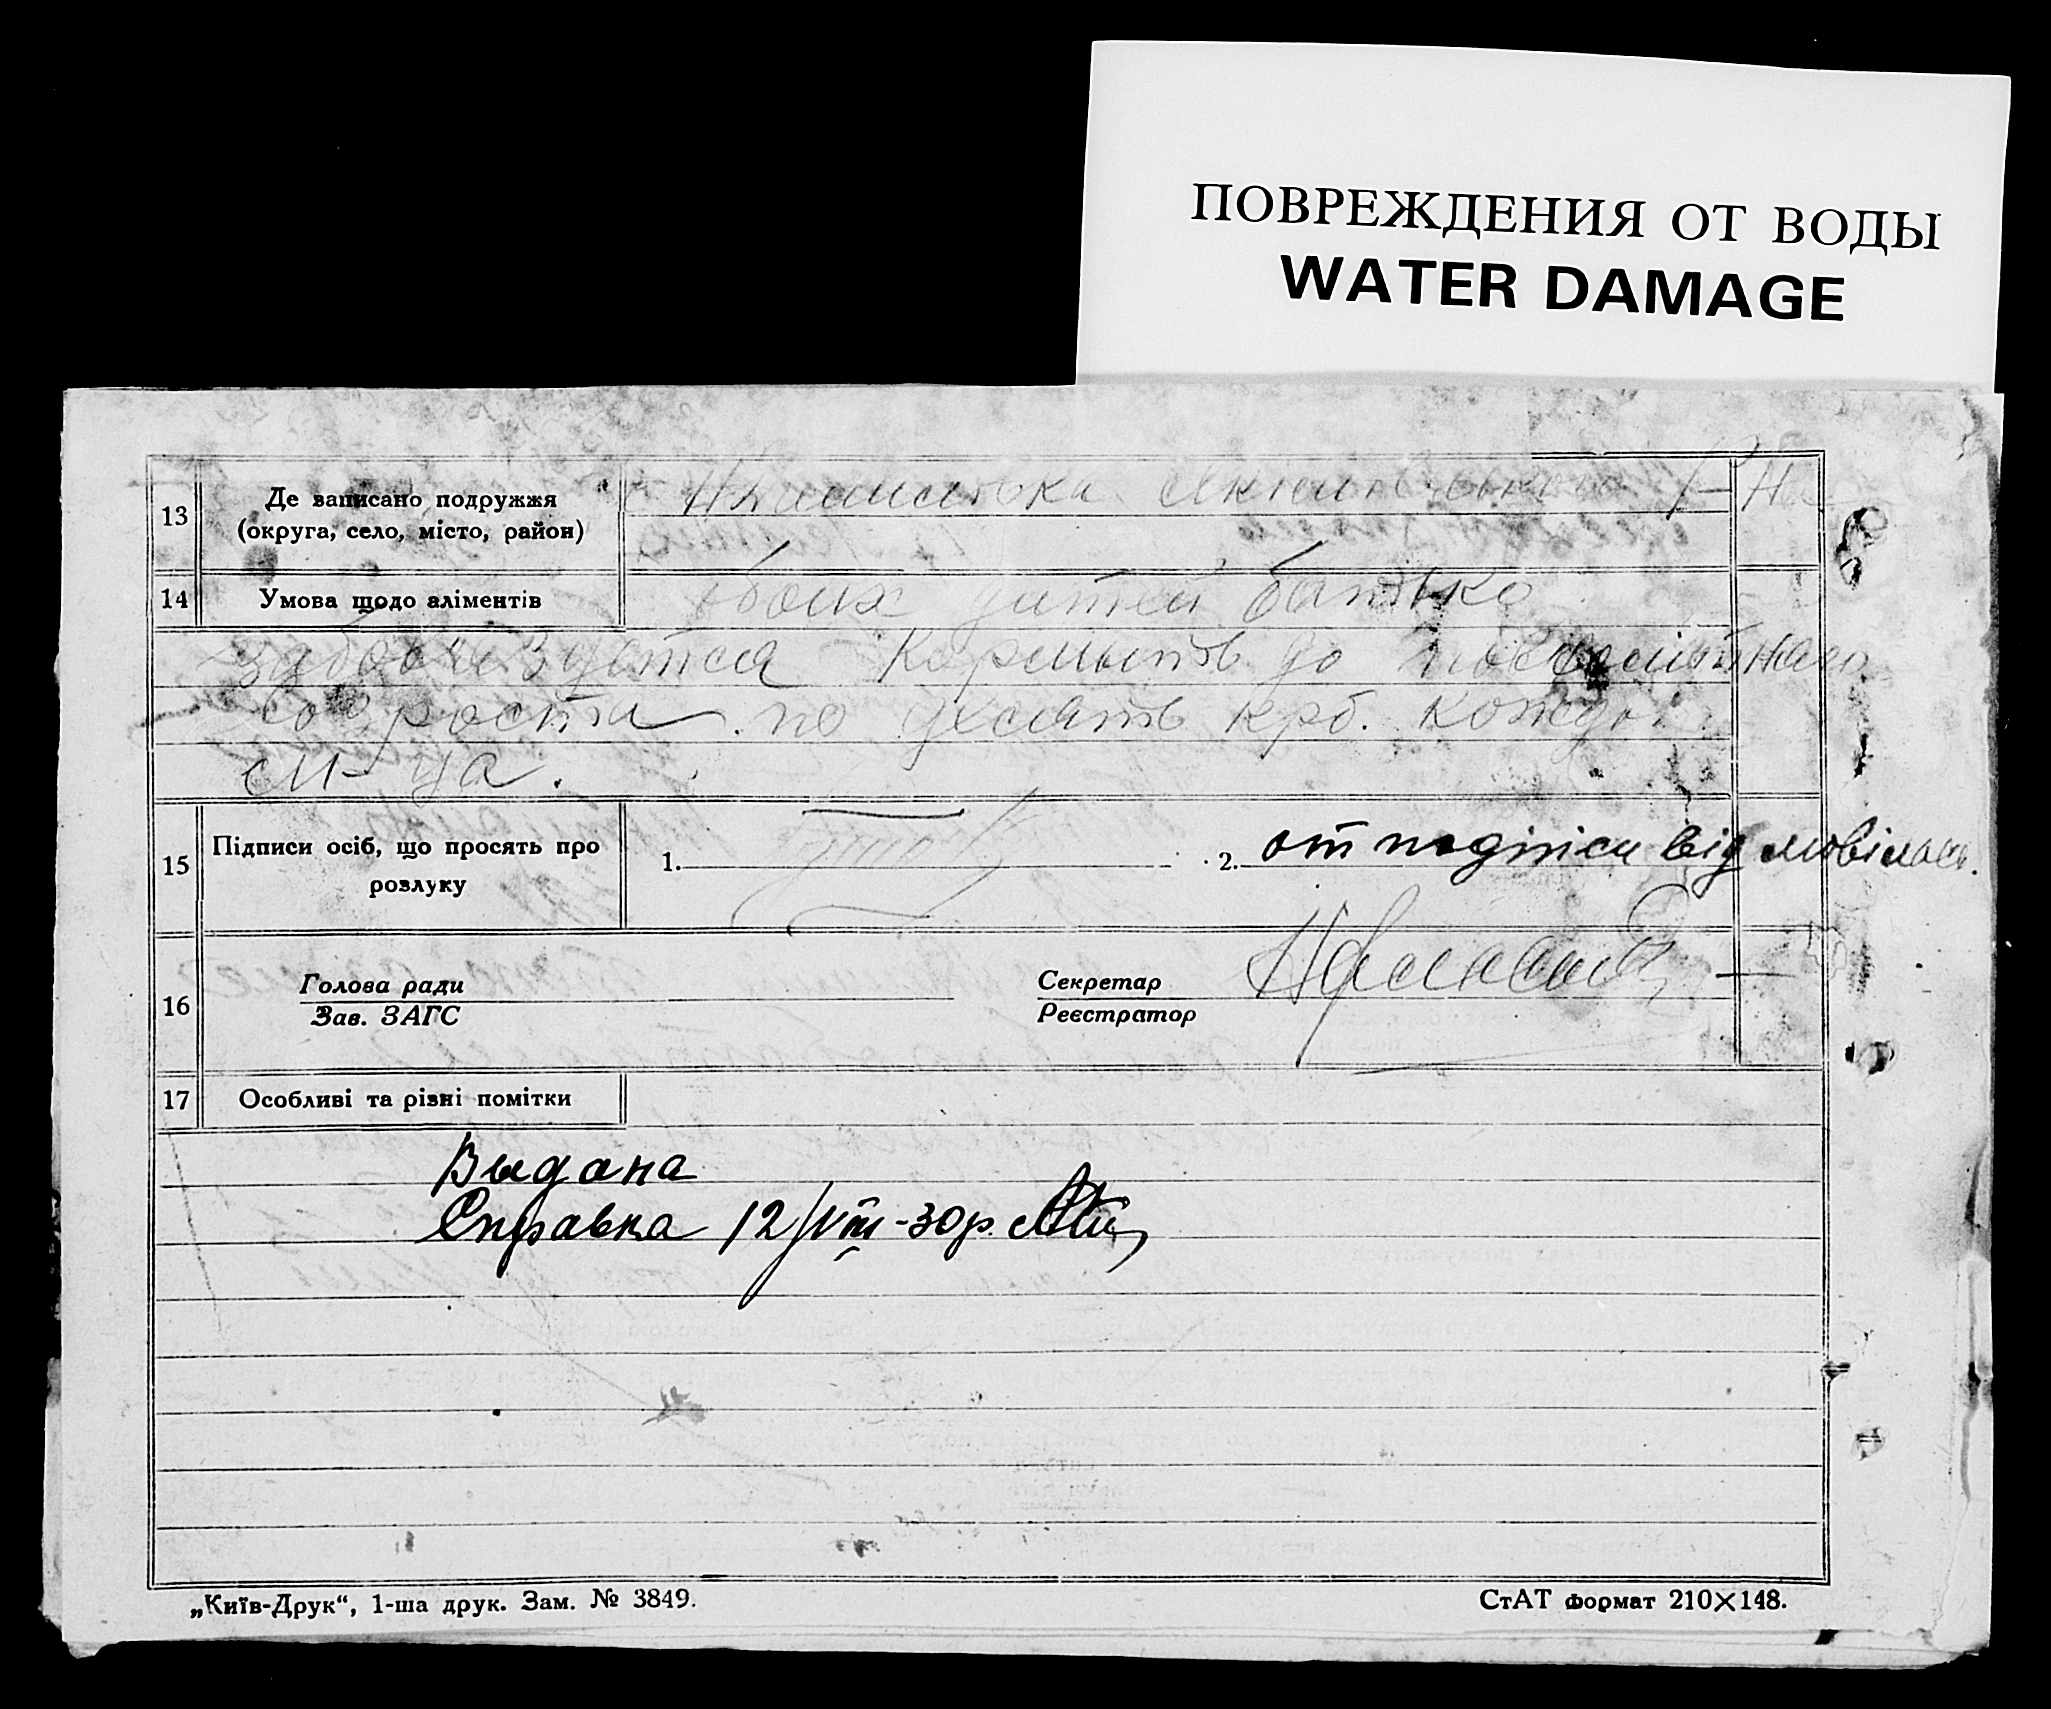 ПОВРЕЖДЕНИЯ ОТ ВОДЫ
WATER DAMAGE
13
Де записано подружжя
(округа, село, місто, район)
14
Умова щодо аліментів
обоих дитей батько
кормыть до
по десять крб. кожды
м-ца.
15
Підписи осіб, що просять про
розлуку
1.
2. от подпіси відмовілась.
16
Голова ради
Зав. ЗАГС
Секретар
Реєстратор
17
Особливі та різні помітки
Выдана
Справка 12/VIII-30р.
„Київ-Друк“, 1-ша друк. Зам. № 3849.
СтАТ формат 210×148.